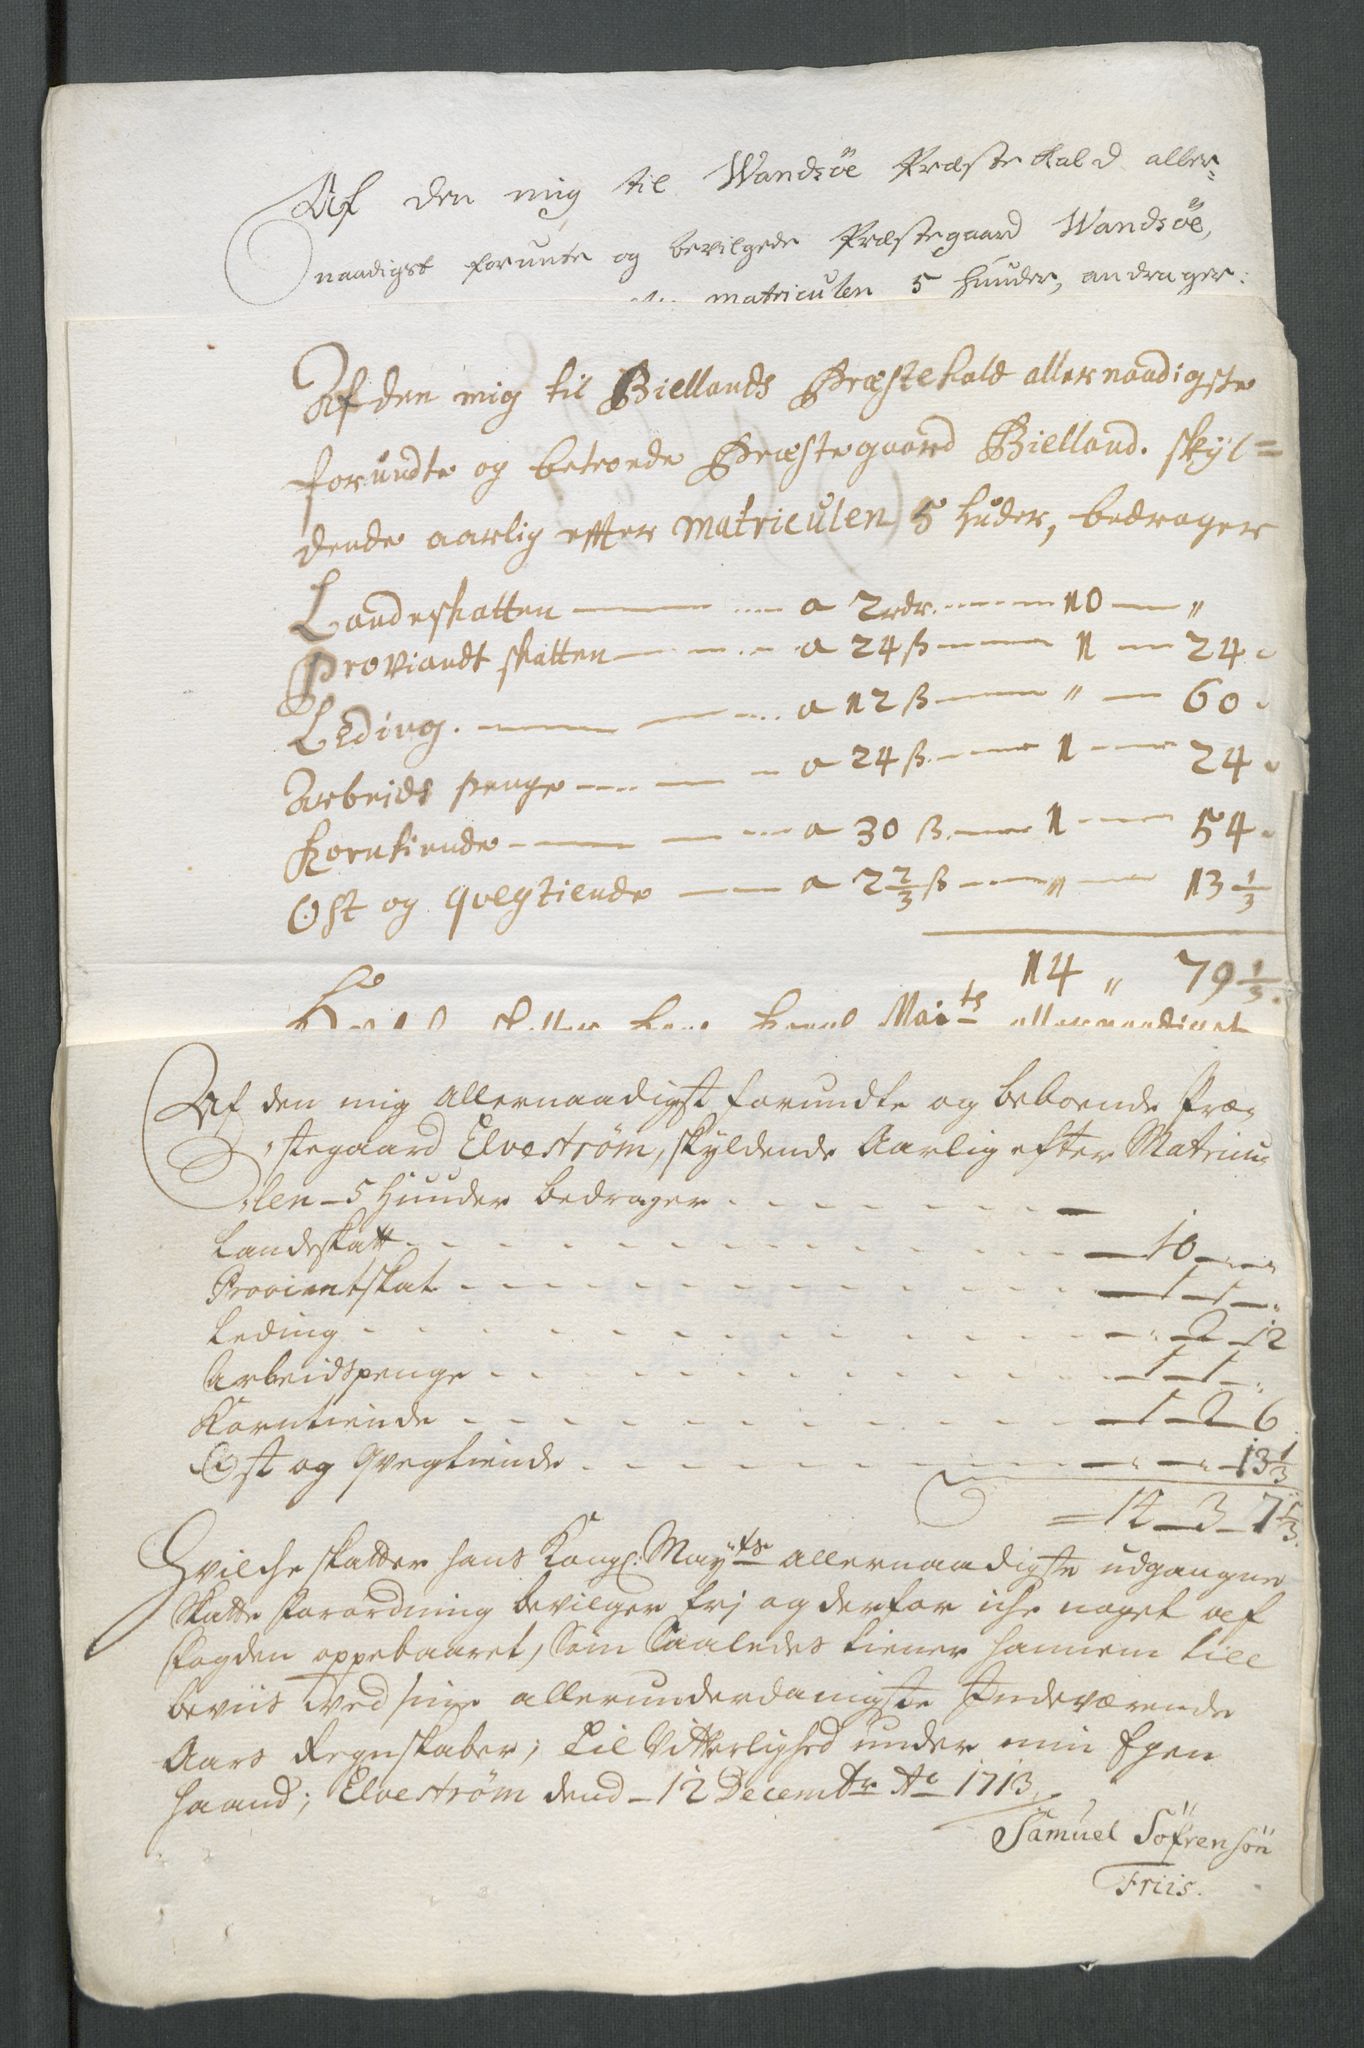 Af den mig til Wandsöe Præstekald aller-
naadigst forunte og bevilgede Præstegaard Wandsöe,
matriculen 5 huuder, andrager:
Af den mig til Biellands Præstekald allernaadigste
forundte og betroede Præstegaard Bielland. skyl=
dende aarlig effter matriculen 5 huder, bedrager
Landskatten a 2 rdr. 10 "
Proviandt skatten a 24 ß 1 24
Leding. a 12 ß " 60
Arbeids penge a 24 ß 1 24
Korntiende a 30 ß 1 54
Ost og qvegtiende a 2 2/3 ß " 13 1/3
14 " 79 1/3.
Mai:ts allernaadigst
Af den mig allernaadigst forundte og beboende Præ-
stegaard Elveström, skyldende Aarlig efter Matricu-
len 5 Huuder bedrager
Landskatt 10 " "
Proviantskat 1 1 "
Leding " 2 12
Arbeidspenge 1 1 "
Korntiende 1 2 6
Ost og qvegtiende " " 13 1/3
= 14 3 7 1/3.
Hvilche skatter hans Kongl. May:ts allernaadigste udgangne
Skatte forordning bevilger frj og derfor iche noget af
fogden oppebaaret, som saaledes tiener hannem till
beviis ved sine allerunderdanigste Indeværende
Aars Regnskaber; Til Vitterlighed under min Egen
haand; Elveström dend 12 Decembr Ao 1713
Samuel Söfrensön
Friis.